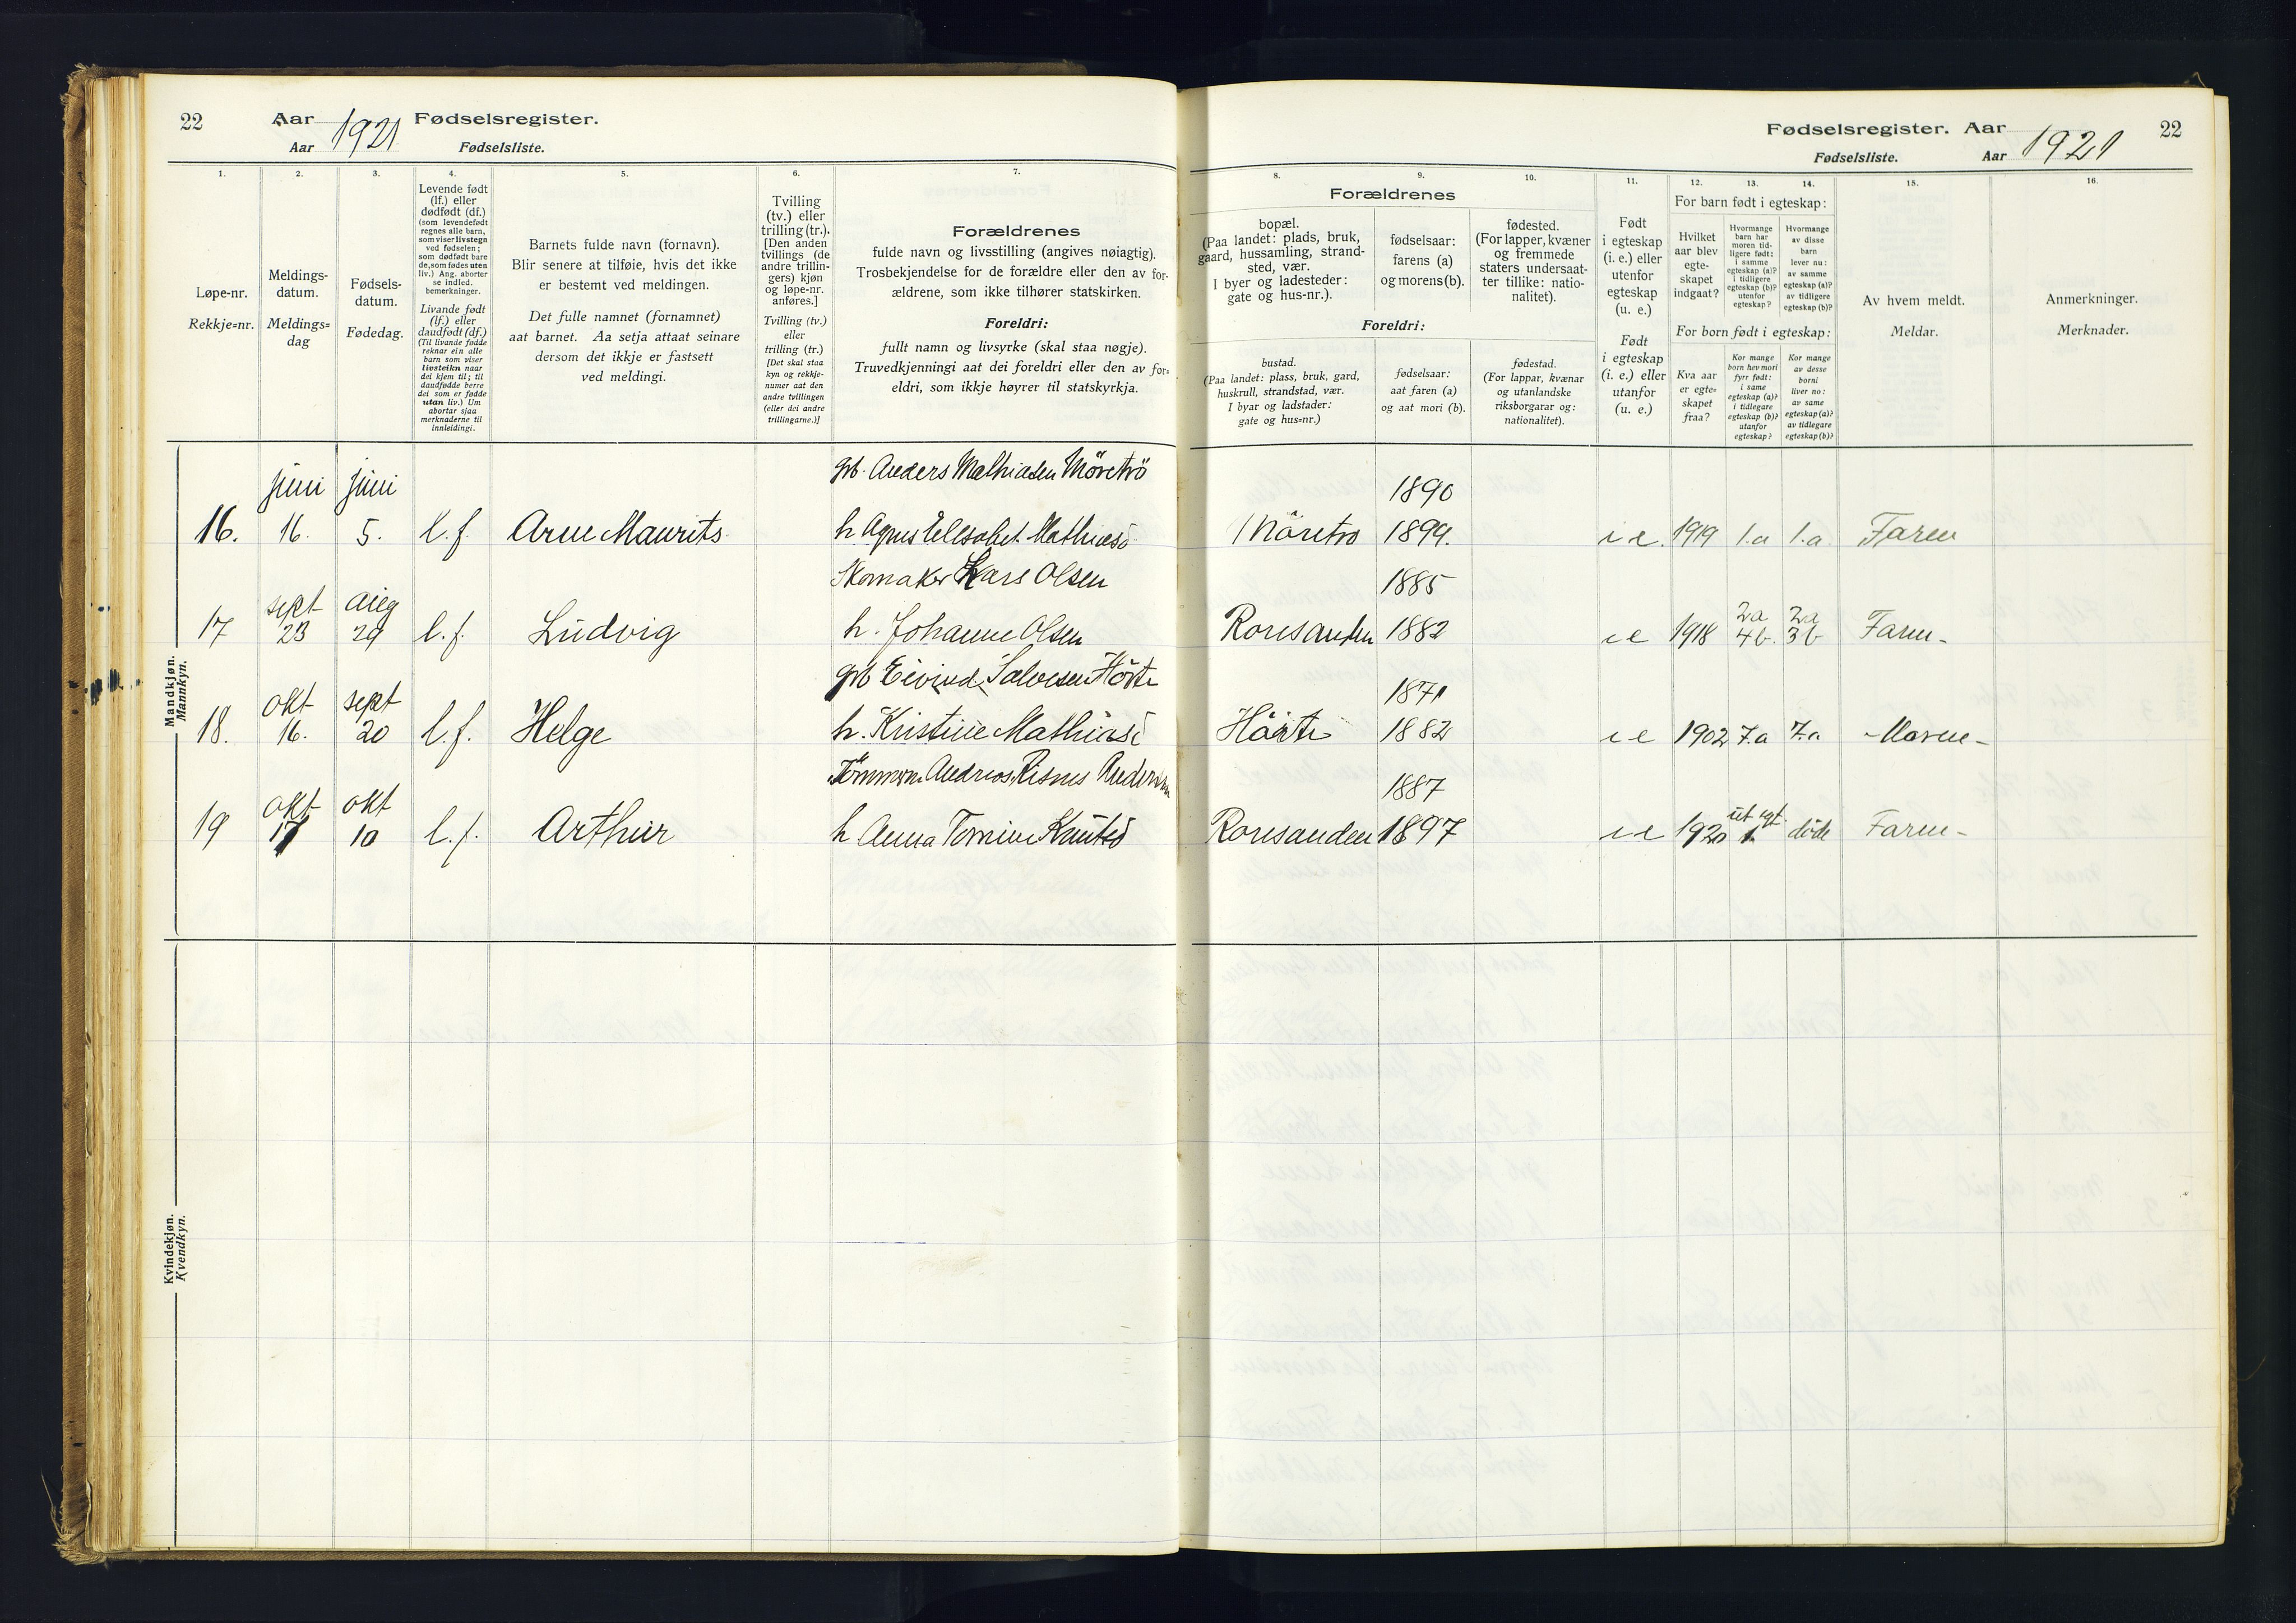 22 Aar 1921 Fødselsregister.
Aar Fødselsliste.
1. 2. 3. 4. 5. 6. 7.
Løpe-nr.
Rekkje=nr.
Meldings-
datum.
Meldings=
dag
Fødsels-
datum.
Fødedag.
Levende født
(lf.) eller
dødfødt (df.)
(som levendefødt
regnes alle barn,
som viser livstegn
ved fødselen;
som dødfødt bare
de, som fødes uten
liv.) Ang. aborter
se indled.
bemerkninger.
Livande født
(lf.) eller
daudfødt (df.)
(Til livande fødde
reknar ein alle
barn som viser
livsteikn naar
dei kjem til; til
daudfødde berre
dei som er fødde
utan liv.) Um
abortar sjaa
merknaderne til
innleidingi.
Barnets fulde navn (fornavn).
Blir senere at tilføie, hvis det ikke
er bestemt ved meldingen.
Det fulle namnet (fornamnet)
aat barnet. Aa setja attaat seinare
dersom det ikkje er fastsett
ved meldingi.
Tvilling
(tv.) eller
trilling (tr.).
[Den anden
tvillings (de
andre trillin-
gers) kjøn
og løpe-nr.
anføres.]
Tvilling (tv.)
eller
trilling (tr.)
[Det skal staa
kyn og rekkje-
numer aat den
andre tvillingen
(eller dei andre
trillingarne.)]
Forældrenes
fulde navn og livsstilling (angives nøiagtig).
Trosbekjendelse for de forældre eller den av for-
ældrene, som ikke tilhører statskirken.
Foreldri:
fullt namn og livsyrke (skal staa nøgje).
Truvedkjenningi aat dei foreldri eller den av for=
eldri, som ikkje høyrer til statskyrkja.
Fødselsregister. Aar 1921 22
Fødselsliste. Aar
8. 9. 10. 11. 12. 13. 14. 15. 16.
Forældrenes
bopæl.
(Paa landet: plads, bruk,
gaard, hussamling, strand-
sted, vær.
I byer og ladesteder:
gate og hus-nr.).
fødselsaar:
farens (a)
og morens (b).
fødested.
(For lapper, kvæner
og fremmede
staters undersaat-
ter tillike: natio-
nalitet).
Foreldri:
bustad.
(Paa landet: plass, bruk, gard,
huskrull, strandstad, vær.
I byar og ladstader:
gate og hus=nr.)
fødselsaar:
aat faren (a)
og aat mori (b).
fødestad.
(For lappar, kvænar
og utanlandske
riksborgarar og:
nationalitet).
Født
i egteskap
(i. e.) eller
utenfor
egteskap
(u. e.)
Født
i egteskap
(i. e.) eller
utanfor
(u. e.)
For barn født i egteskap:
Hvilket
aar blev
egte-
skapet
indgaat?
Hvormange
barn har
moren tid-
ligere født:
i samme
egteskap (a)?
i tidligere
egteskap (b)?
utenfor
egteskap?
Hvormange
av disse
barn
lever nu:
av samme
egteskap (a)?
av tidligere
egteskap (b)?
For born født i egteskap:
Kva aar
er egte=
skapet
fraa?
Kor mange
born hev mori
fyrr født:
i same
egteskap (a)?
i tidlegare
egteskap (b)?
utanfor
egteskap?
Kor mange
av desse
borni
liver no:
av same
egteskap (a)?
av tidlegare
egteskap (b)?
Av hvem meldt.
Meldar.
Anmerkninger.
Merknader.
Mandkjøn.
Mannkyn.
juni juni gb. Anders Mathiasen Möretrö 1890
16. 16. 5. l. f. Arne Maurits h Agnes Elisabet Mathiasd Möretrö 1899. i e. 1919 1.a 1.a Faren
sept aug Skomaker Lars Olsen 1885 2a 2a
17 23 29 l. f. Ludvig h. Johanne Olsen Roresanden 1882 i e 1918 4 b. 3 b Faren-
okt sept gb Eivind Salvesen Hörte 1871
18. 16. 20 l. f. Helge h. Kristine Mathiasd Hörte 1882 i e 1902 7.a 7.a -Moren-
okt okt Tømmerm. Andreas Risnes Andersen 1887 ut egt.
19 17 10 l. f. Arthur h Anna Tomine Knutsd Roresanden 1897 i e 1920 1. döde Faren-
Kvindekjøn.
Kvendkyn.